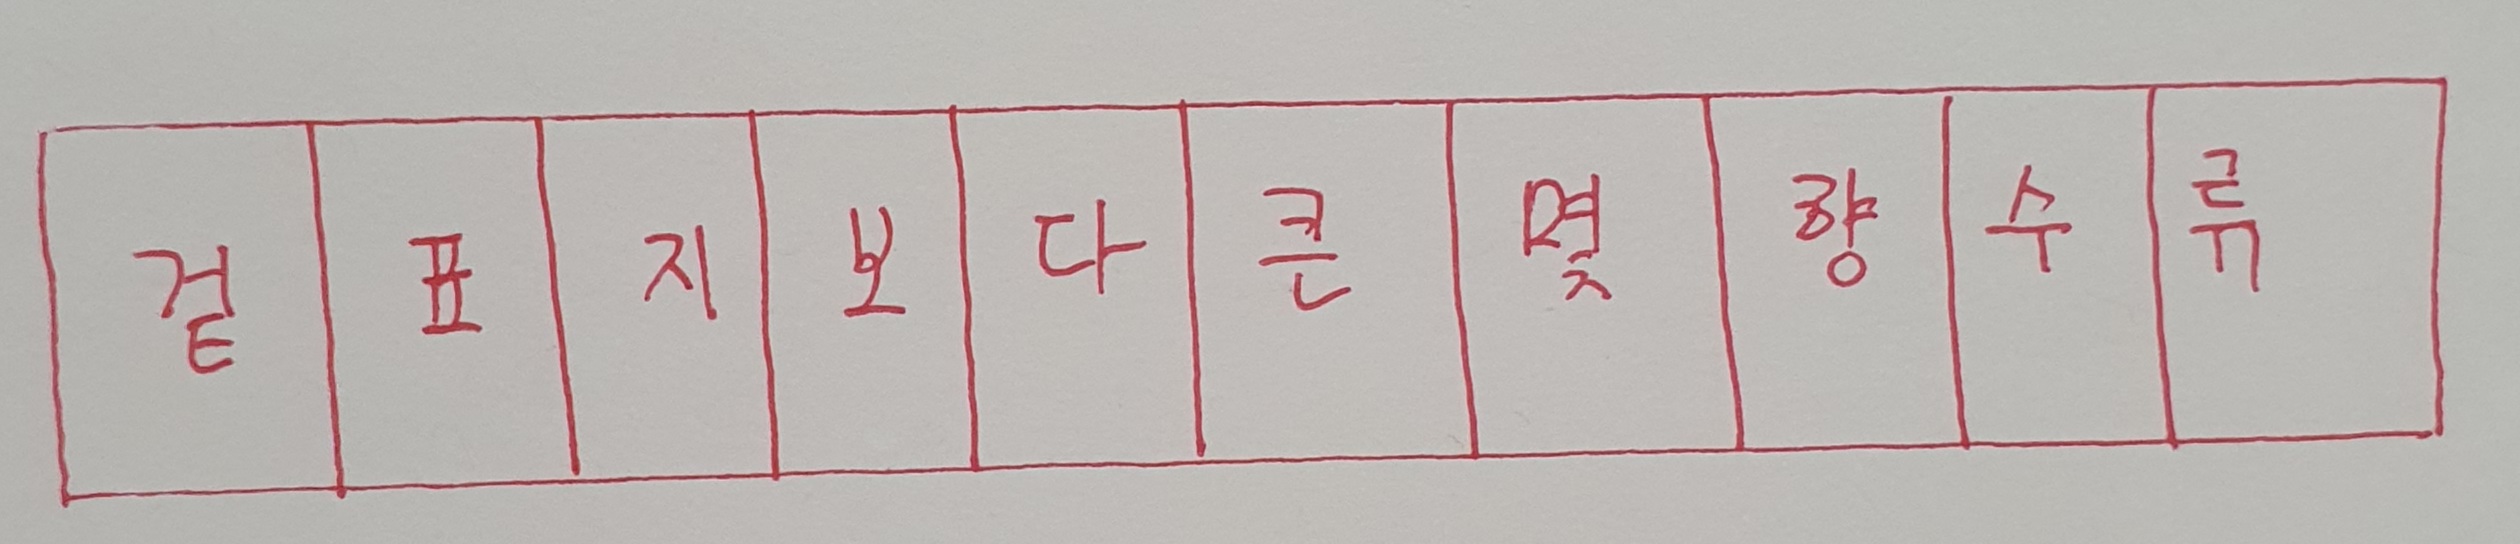 겉표지보다큰몇량수류